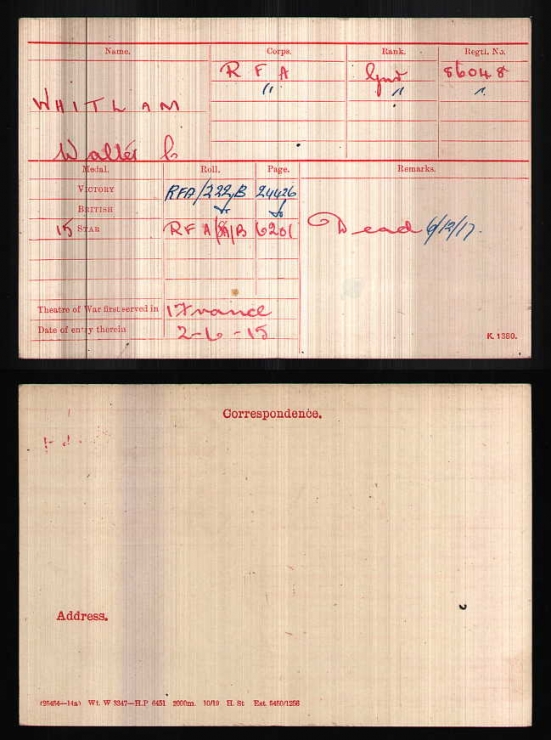 Name. Corps. Rank. Regtl. No.
R F A Gnr 86048
WHITLAM " " "
Walter C.
Medal. Roll. Page. Remarks.
VICTORY RFA/222B 24426
BRITISH
15 STAR RFA/8A/B 6201 Dead 6/12/17.
Theatre of War first served in 1 France
Date of entry therein 2-6-15
K 1380.
Correspondence.
Address.
Wt. W 3347—H.P. 6451 2000m. 10/19 H. St Est. 5450/1256